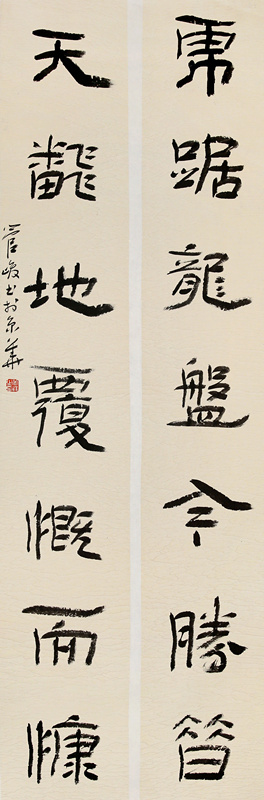 虎踞龍盤今勝昔
天翻地覆慨而慷
管峻书於京華